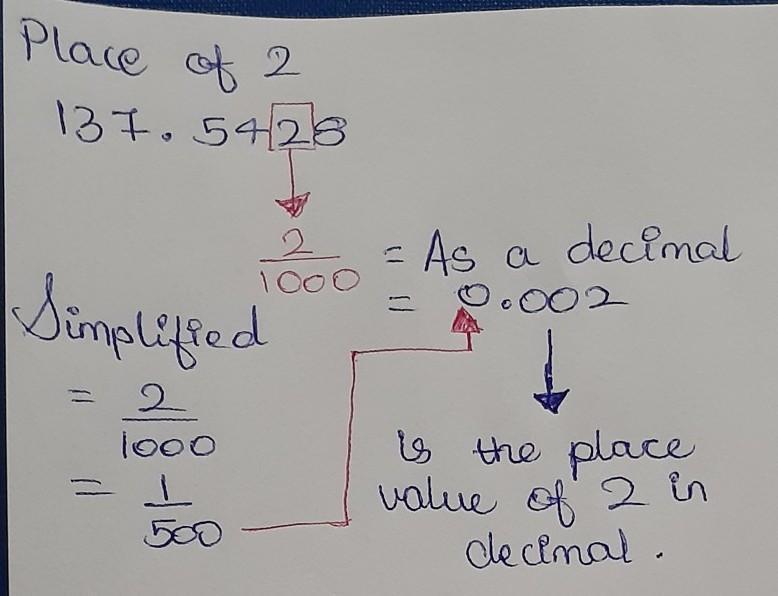 Place of 2
137.5428
2/1000 = As a decimal
= 0.002
Simplified
= 2/1000
= 1/500
is the place
value of 2 in
decimal.